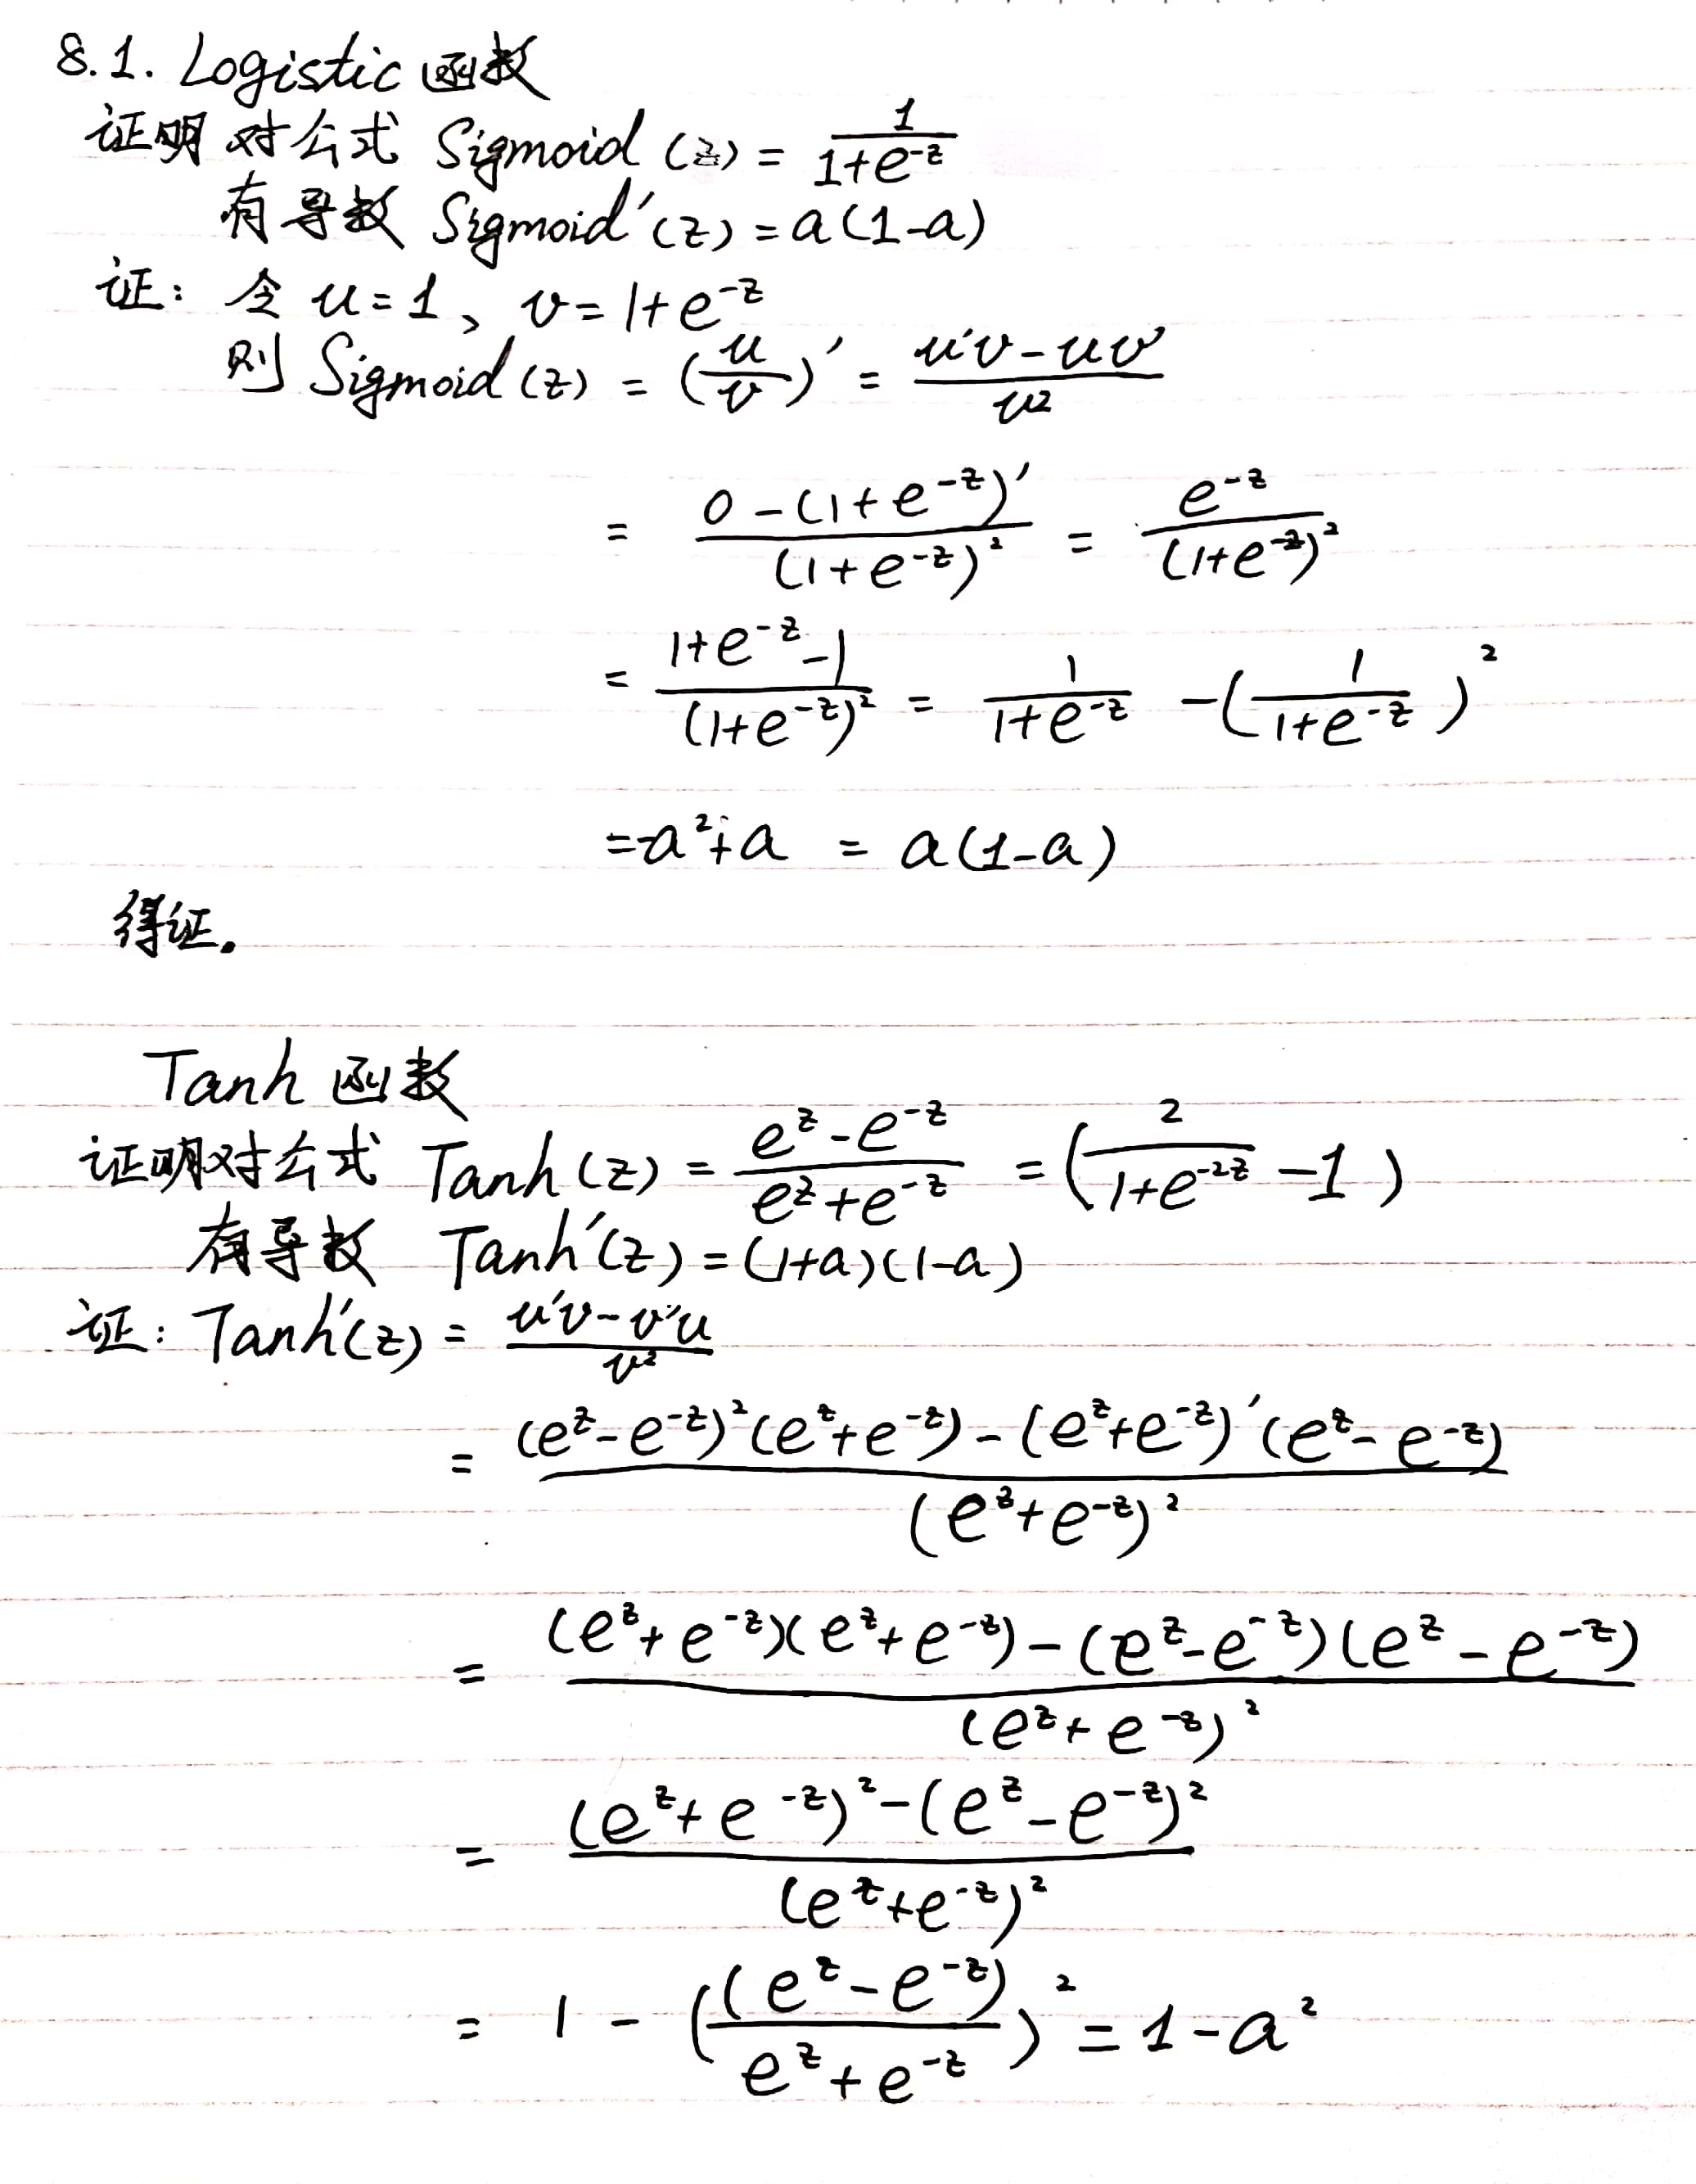 8.1. Logistic 函数
证明 对公式 Sigmoid (z) = \frac{1}{1+e^{-z}}
有导数 Sigmoid'(z) = a(1-a)
证: 令 u=1、 v=1+e^{-z}
则 Sigmoid (z) = (\frac{u}{v})' = \frac{u'v-uv'}{v^2}
= \frac{0-(1+e^{-z})'}{(1+e^{-z})^2} = \frac{e^{-z}}{(1+e^{-z})^2}
= \frac{1+e^{-z}-1}{(1+e^{-z})^2} = \frac{1}{1+e^{-z}} - (\frac{1}{1+e^{-z}})^2
= -a^2+a = a(1-a)
得证。
Tanh 函数
证明对公式 Tanh (z) = \frac{e^z-e^{-z}}{e^z+e^{-z}} = (\frac{2}{1+e^{-2z}} -1)
有导数 Tanh'(z) = (1+a)(1-a)
证: Tanh'(z) = \frac{u'v-v'u}{v^2}
= \frac{(e^z-e^{-z})^2(e^z+e^{-z})-(e^z+e^{-z})'(e^z-e^{-z})}{(e^z+e^{-z})^2}
= \frac{(e^z+e^{-z})(e^z+e^{-z})-(e^z-e^{-z})(e^z-e^{-z})}{(e^z+e^{-z})^2}
= \frac{(e^z+e^{-z})^2-(e^z-e^{-z})^2}{(e^z+e^{-z})^2}
= 1 - (\frac{(e^z-e^{-z})}{e^z+e^{-z}})^2 = 1-a^2